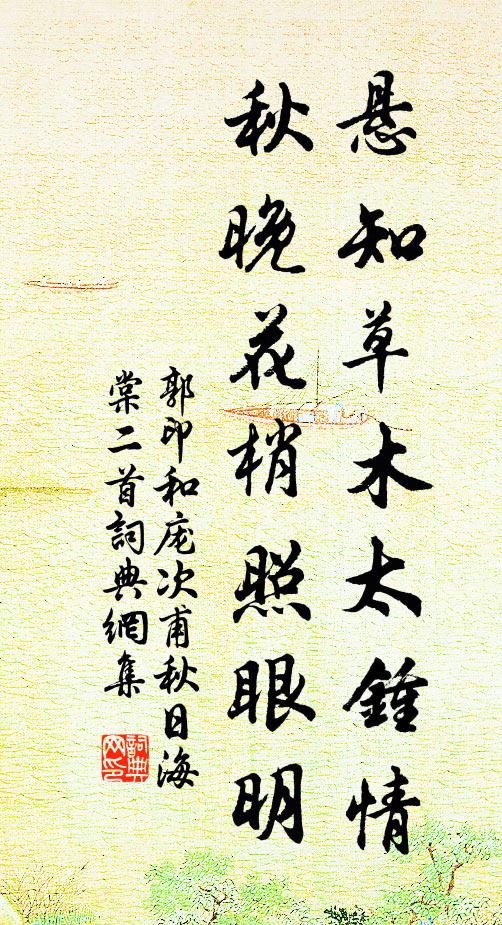 悬知草木太鍾情
秋晚花梢照眼明
郭印和庞次甫秋日海
棠二首詞典網集
詞典
网印